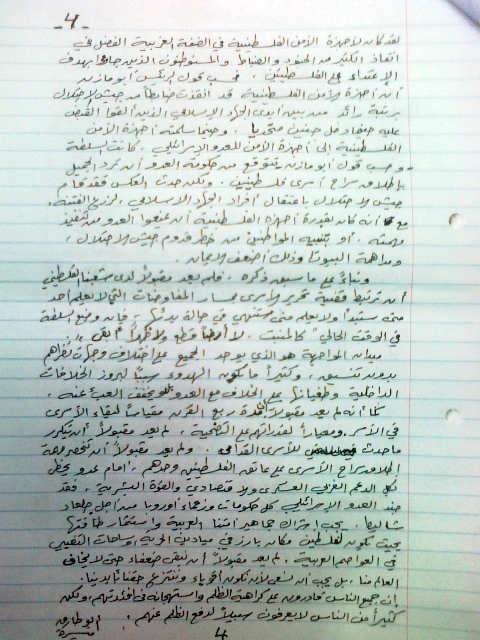 - 4 -
لقد كان لأجهزة الأمن الفلسطينية في الضفة الغربية الفضل في
انقاذ الكثير من الجنود والضباط والمستوطنين الذين جاءوا بهدف
الاعتداء على الفلسطينيين . فحسب قول الرئيس أبو مازن
أن أجهزة الأمن الفلسطينية قد انقذت ضابطاً من جيش الاحتلال
برتبة رائد من بين أيدي الجهاد الإسلامي الذين ألقوا القبض
عليه حياً وصل جنين متخفياً . وحينما سلمته أجهزة الأمن
الفلسطينية إلى أجهزة الأمن للعدو الإسرائيلي . كانت السلطة
وحسب قول أبو مازن تتوقع من حكومة العدو أن ترد الجميل
باطلاق سراح أسرى فلسطينيين . ولكن حدث العكس فقد قام
جيش الاحتلال باعتقال أفراد الجهاد الإسلامي ، لزرع الفتنة ،
مع أنه كان بمقدرة أجهزة الفلسطينية أن يمنعوا العدو من تنفيذ
أو تنبيه المواطنين من خطر قدوم جيش الاحتلال ،
ومداهمة البيوت وذلك أضعف الايمان .
وبناءً على ما سبق ذكره ، فلم يعد مقبولاً لدى شعبنا الفلسطيني
أن ترتبط قضية تحرير الأسرى بمسار المفاوضات التي لا يعلم أحد
متى ستبدأ ولا يعلم متى ستنتهي في حالة بدئها ، فإن وضع السلطة
في الوقت الحالي " كالمنبت . لا أرضاً قطع ولا ظهراً أبقى " .
ميدان المواجهة هو الذي يوحد الجميع على اختلاف وجهات نظرهم
بدون تنسيق ، وكثيراً ما يكون الهدوء سبباً لبروز الخلافات
الداخلية وطغيانها على الخلاف مع العدو يخفف العبء عنه .
كما أنه لم يعد مقبولاً لمدة ربع القرن مقياساً لبقاء الأسرى
في الأسر ومعياراً لقدراتهم على التضحية . لم يعد مقبولاً أن يتكرر
ما حدث للأسرى القدامى . ولم يعد مقبولاً أن تنحصر مهمة
اطلاق سراح الأسرى على عاتق الفلسطينيين وحدهم ، أمام عدو يحظى
بكل الدعم الغربي العسكري والاقتصادي والقوة البشرية . فقد
جند العدو الإسرائيلي كل حكومات وزعماء أوروبا من أجل جلعاد
شاليط . يجب اشراك جماهير أمتنا العربية واستثمار طاقتها
بحيث تكون لفلسطين مكان بارز في ميادين الحرية وساحات التغيير
في العواصم العربية . لم يعد مقبولاً أن نبقى ضعفاء حتى لا يخاف
العالم منا ، بل يجب أن نسعى لأن نكون أقوياء وننتزع حقنا بأيدينا .
إن جميع الناس قادرون على كراهية الظلم واستهجانه في أفئدتهم ، ولكن
كثيراً من الناس لا يعرفون سبيلاً لدفع الظلم عنهم .
4